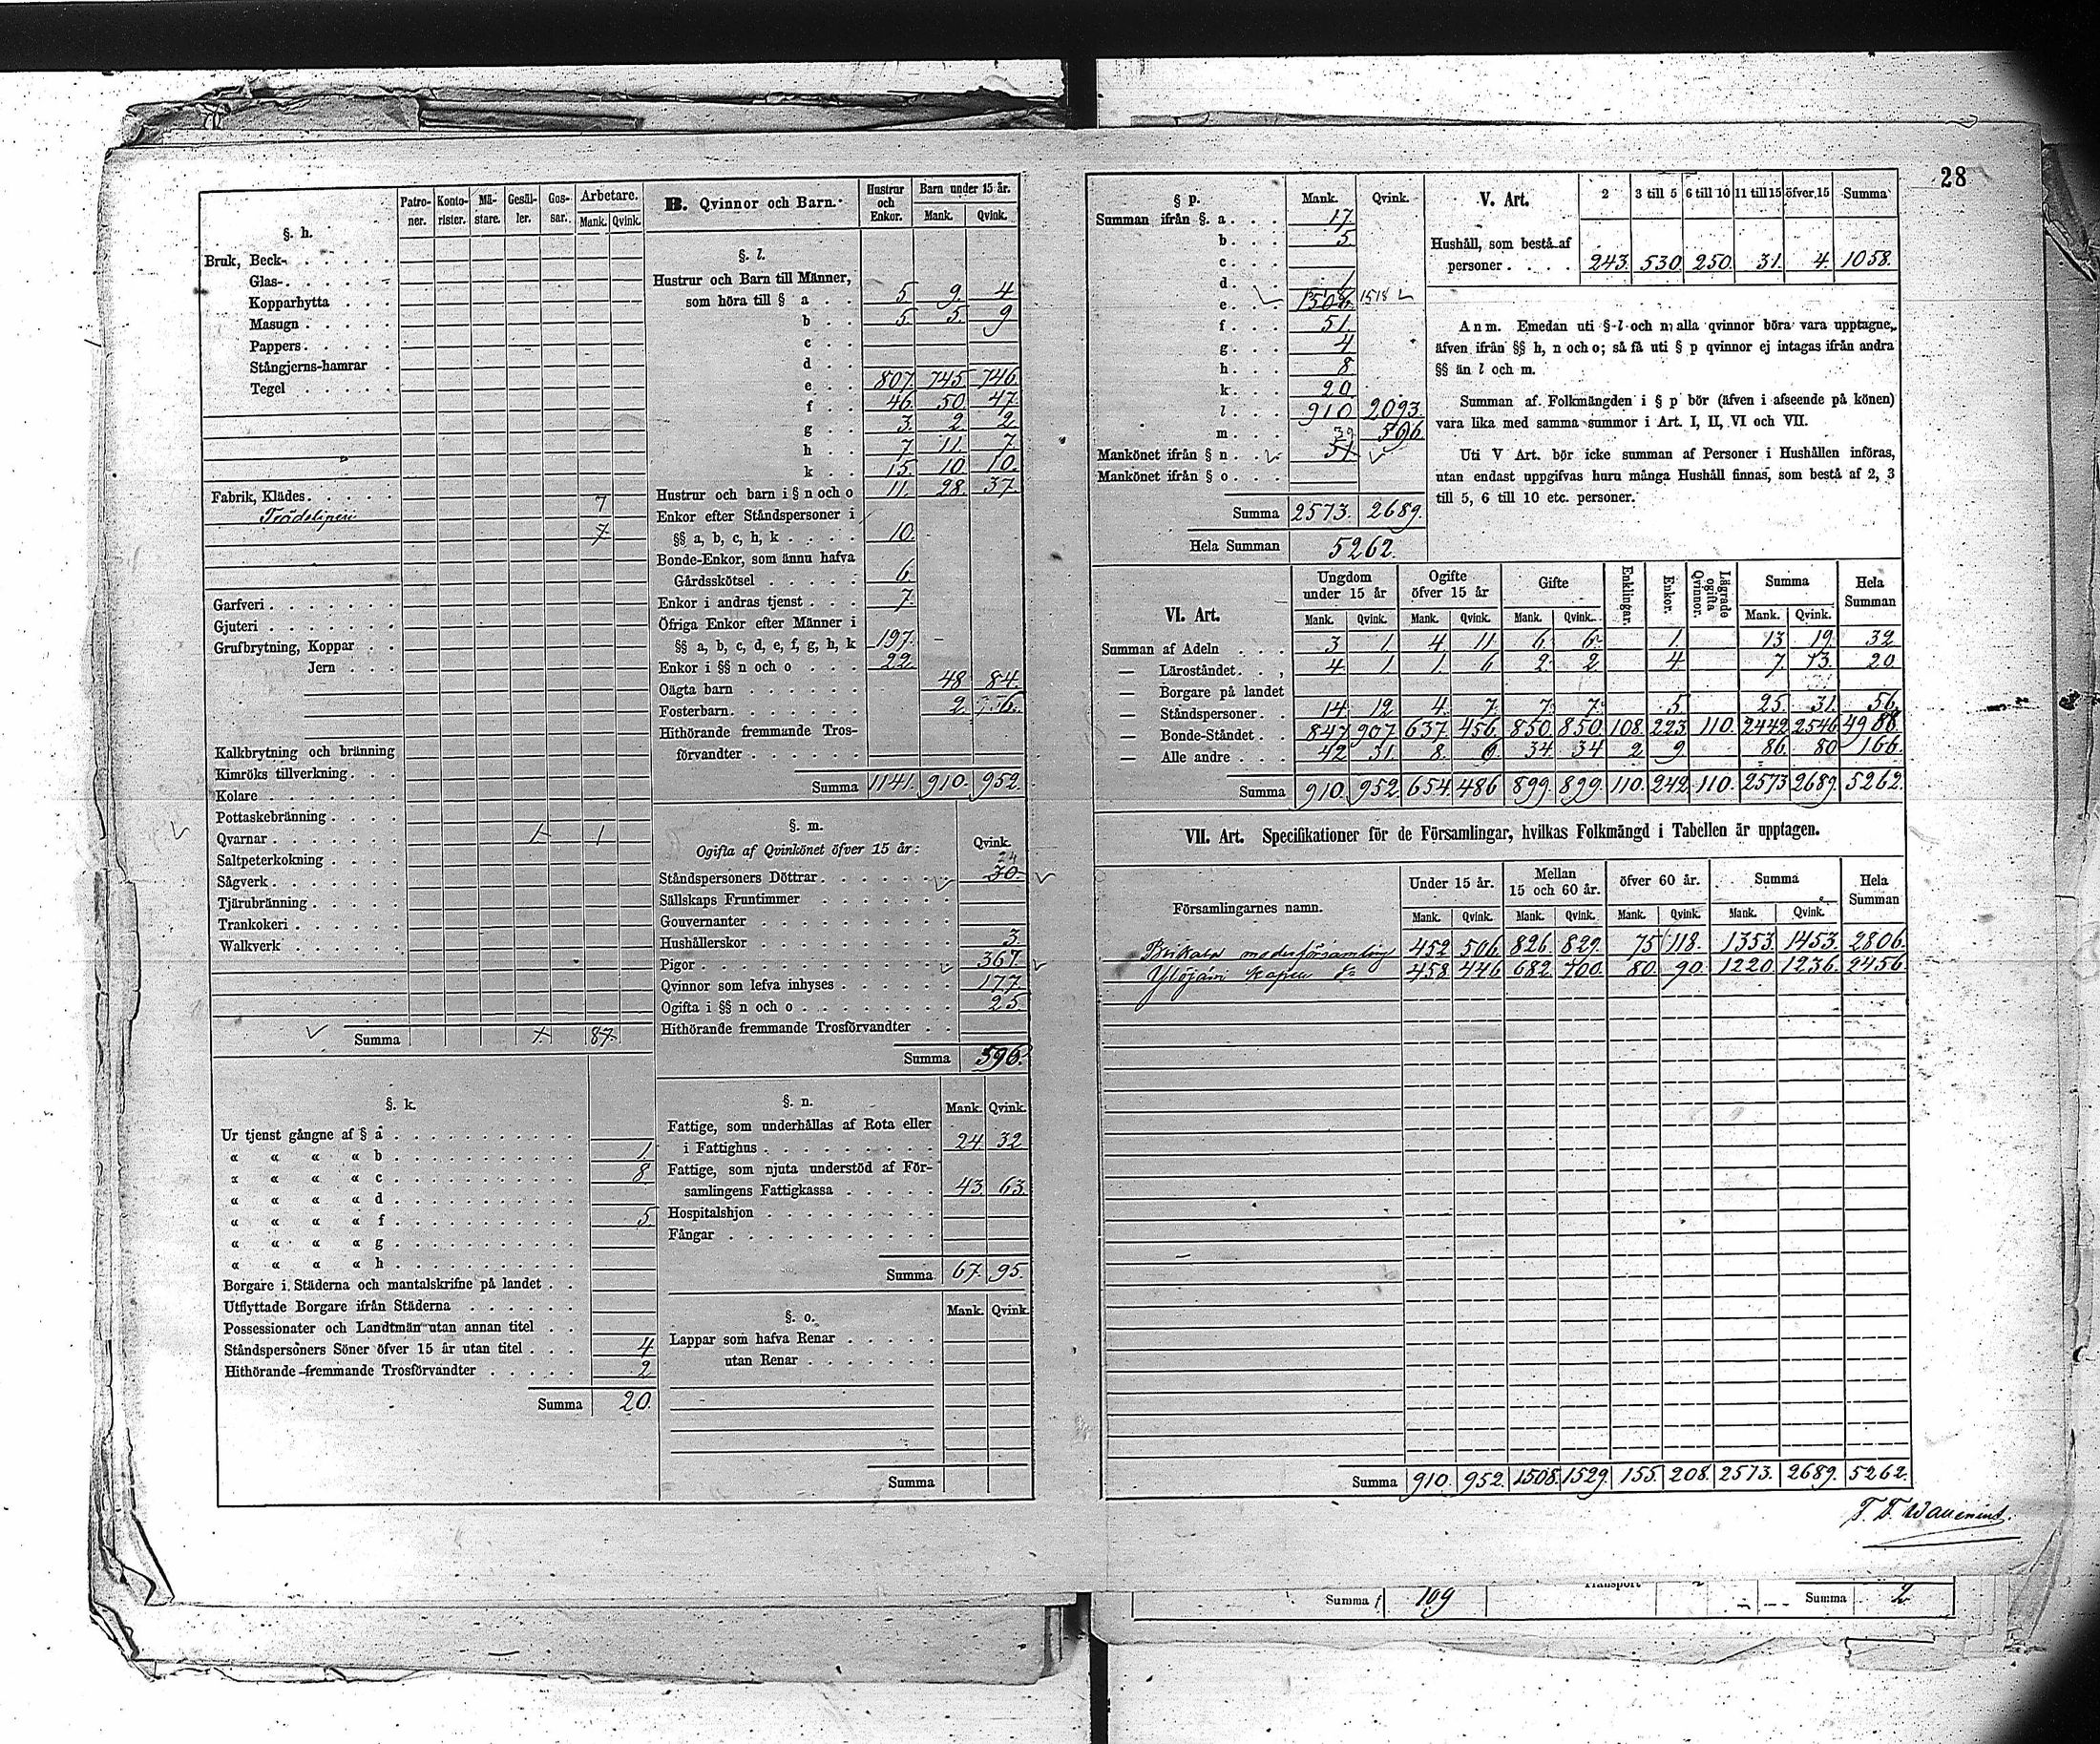 28
Patro- ner. Konto- rister. Mä- stare. Gesäl- ler. Gos- sar. Arbetare.
Mank. Qvink.
§. h.
Bruk, Beck-
Glas-
Kopparhytta
Masugn
Pappers
Stångjerns-hamrar
Tegel
Fabrik, Klädes 7
7
Garfveri
Gjuteri
Grufbrytning, Koppar
Jern
Kalkbrytning och bränning
Kimröks tillverkning
Kolare
Pottaskebränning
Qvarnar 1 1
Saltpeterkokning
Sågverk
Tjärubränning
Trankokeri
Walkverk
Summa 87
§. k.
Ur tjenst gångne af § a
« « « « b 1
« « « « c 8
« « « « d
« « « « f 5
« « « « g
« « « « h
Borgare i Städerna och mantalskrifne på landet
Utflyttade Borgare ifrån Städerna
Possessionater och Landtmän utan annan titel
Ståndspersoners Söner öfver 15 år utan titel 4
Hithörande fremmande Trosförvandter 2
Summa 20
B. Qvinnor och Barn. Hustrur och Enkor. Barn under 15 år.
Mank. Qvink.
§. l.
Hustrur och Barn till Männer,
som höra till § a 5 9 4
b 5 5 9
c
d
e 807 745 746
f 46 50 47
g 3 2 2
h 7 11 7
k 15 10 10
Hustrur och barn i § n och o 11 28 37
Enkor efter Ståndspersoner i
§§ a, b, c, h, k 10
Bonde-Enkor, som ännu hafva
Gårdsskötsel 6
Enkor i andras tjenst 7
Öfriga Enkor efter Männer i
§§ a, b, c, d, e, f, g, h, k 197
Enkor i §§ n och o 22
Oägta barn 48 84
Fosterbarn 2 6
Hithörande fremmande Tros-
förvandter
Summa 1141 910 952
§. m.
Ogifta af Qvinkönet öfver 15 år: Qvink.
24
Ståndspersoners Döttrar 30
Sällskaps Fruntimmer
Gouvernanter
Hushållerskor 3
Pigor 367
Qvinnor som lefva inhyses 177
Ogifta i §§ n och o 25
Hithörande fremmande Trosförvandter
Summa 596
§. n. Mank. Qvink.
Fattige, som underhållas af Rota eller
i Fattighus 24 32
Fattige, som njuta understöd af För-
samlingens Fattigkassa 43 63
Hospitalshjon
Fångar
Summa 67 95
§. o. Mank. Qvink.
Lappar som hafva Renar
utan Renar
Summa
§ p. Mank. Qvink.
Summan ifrån §. a 17
b 5
c
d 1
e 1518
f 51
g 4
h 8
k 20
l 910 2093
m 596
39
Mankönet ifrån § n 51
Mankönet ifrån § o
Summa 2573 2689
Hela Summan 5262
V. Art. 2 3 till 5 6 till 10 11 till 15 öfver 15 Summa
Hushåll, som bestå af
personer 243 530 250 31 4 1058
Anm. Emedan uti § l och n alla qvinnor böra vara upptagne,
äfven ifrån §§ h, n och o; så få uti § p qvinnor ej intagas ifrån andra
§§ än l och m.
Summan af Folkmängden i § p bör (äfven i afseende på könen)
vara lika med samma summor i Art. I, II, VI och VII.
Uti V Art. bör icke summan af Personer i Hushållen införas,
utan endast uppgifvas huru många Hushåll finnas, som bestå af 2, 3
till 5, 6 till 10 etc. personer.
VI. Art. Ungdom under 15 år Ogifte öfver 15 år Gifte Enklingar. Enkor. Lägrade ogifta Qvinnor. Summa Hela Summan
Mank. Qvink. Mank. Qvink. Mank. Qvink. Mank. Qvink.
Summan af Adeln 3 1 4 11 6 6 1 13 19 32
— Läroståndet 4 1 1 6 2 2 4 7 13 20
Borgare på landet
— Ståndspersoner 14 12 4 7 7 7 5 25 31 56
— Bonde-Ståndet 847 907 637 456 850 850 108 223 110 2442 2546 4988
— Alle andre 42 31 8 6 34 34 2 9 86 80 166
Summa 910 952 654 486 899 899 110 242 110 2573 2689 5262
VII. Art. Specifikationer för de Församlingar, hvilkas Folkmängd i Tabellen är upptagen.
Församlingarnes namn. Under 15 år. Mellan 15 och 60 år. öfver 60 år. Summa Hela Summan
Mank. Qvink. Mank. Qvink. Mank. Qvink. Mank. Qvink.
Birkala moderförsamling 452 506 826 829 75 118 1353 1453 2806
Ylöjärvi kapell do 458 446 682 700 80 90 1220 1236 2456
Summa 910 952 1508 1529 155 208 2573 2689 5262
Transport
Summa 109 Summa 2